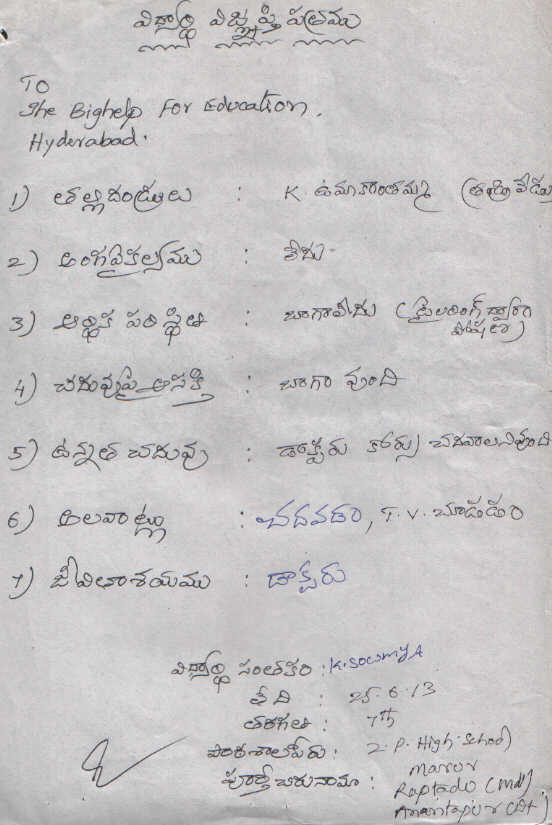 విద్యార్థి విజ్ఞప్తి పత్రము
TO
The Bighelp For Education.
Hyderabad.
1) తల్లిదండ్రులు : K. ఉమాకాంతమ్మ (తండ్రి లేడు)
2) అంగవైకల్యము : లేదు
3) ఆర్థిక పరిస్థితి : బాగాలేదు (టైలరింగ్ ద్వారా
పోషణ)
4) చదువుపై ఆసక్తి : బాగా వుంది
5) ఉన్నత చదువు : డాక్టరు కోర్సు చదవాలనివుంది
6) అలవాట్లు : చదవడం, T.V. చూడడం
7) జీవితాశయము : డాక్టరు
విద్యార్థి సంతకం : K.SowmyA
తేది : 25.6.13
తరగతి : 7th
పాఠశాలపేరు : Z.P. High School
Marur
పూర్తి చిరునామా : Raptadu (Md)
Anantapur (Dt)